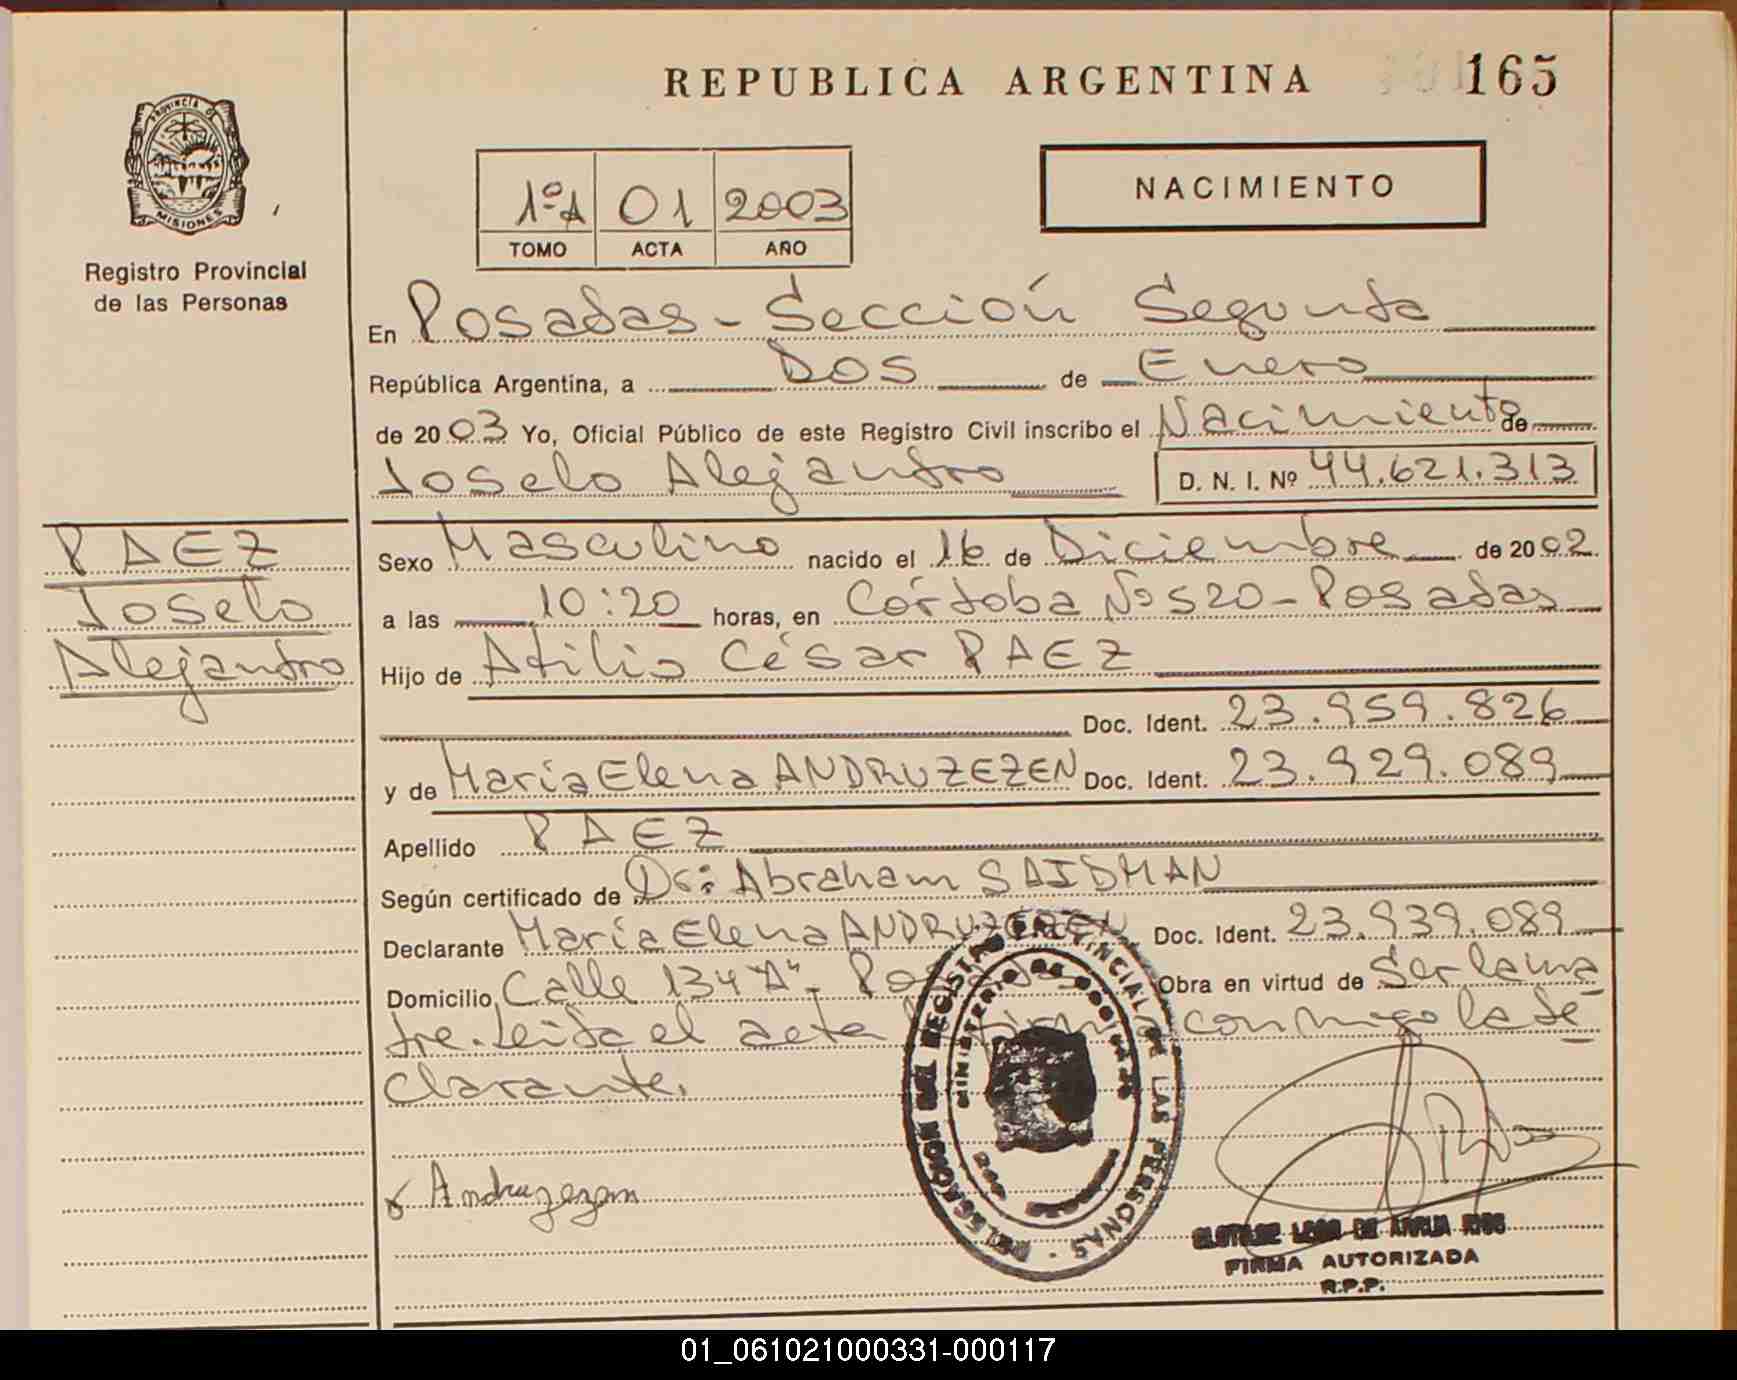 REPUBLICA ARGENTINA
165
PROVINCIA DE
MISIONES
Registro Provincial
de las Personas
1º A 01 2003
TOMO ACTA AÑO
NACIMIENTO
En Posadas - Sección Segunda
República Argentina, a Dos de Enero
de 2003 Yo, Oficial Público de este Registro Civil inscribo el Nacimiento de
Joselo Alejandro D. N. I. Nº 44.621.313
PAEZ
Joselo
Alejandro
Sexo Masculino nacido el 16 de Diciembre de 2002
a las 10:20 horas, en Córdoba Nº 520 - Posadas
Hijo de Atilio César PAEZ
Doc. Ident. 23.959.826
y de María Elena ANDRUZEZEN Doc. Ident. 23.929.089
Apellido PAEZ
Según certificado de Dr: Abraham SAIDMAN
Declarante María Elena ANDRUZEZEN Doc. Ident. 23.939.089
Domicilio Calle 134 "A" - Posadas Obra en virtud de Ser la ma
dre. Leída el acta la firma conmigo la de
clarante.
DELEGACIÓN DEL REGISTRO PROVINCIAL DE LAS PERSONAS
MINISTERIO DE
Andruzezen
FIRMA AUTORIZADA
R.P.P.
01_061021000331-000117